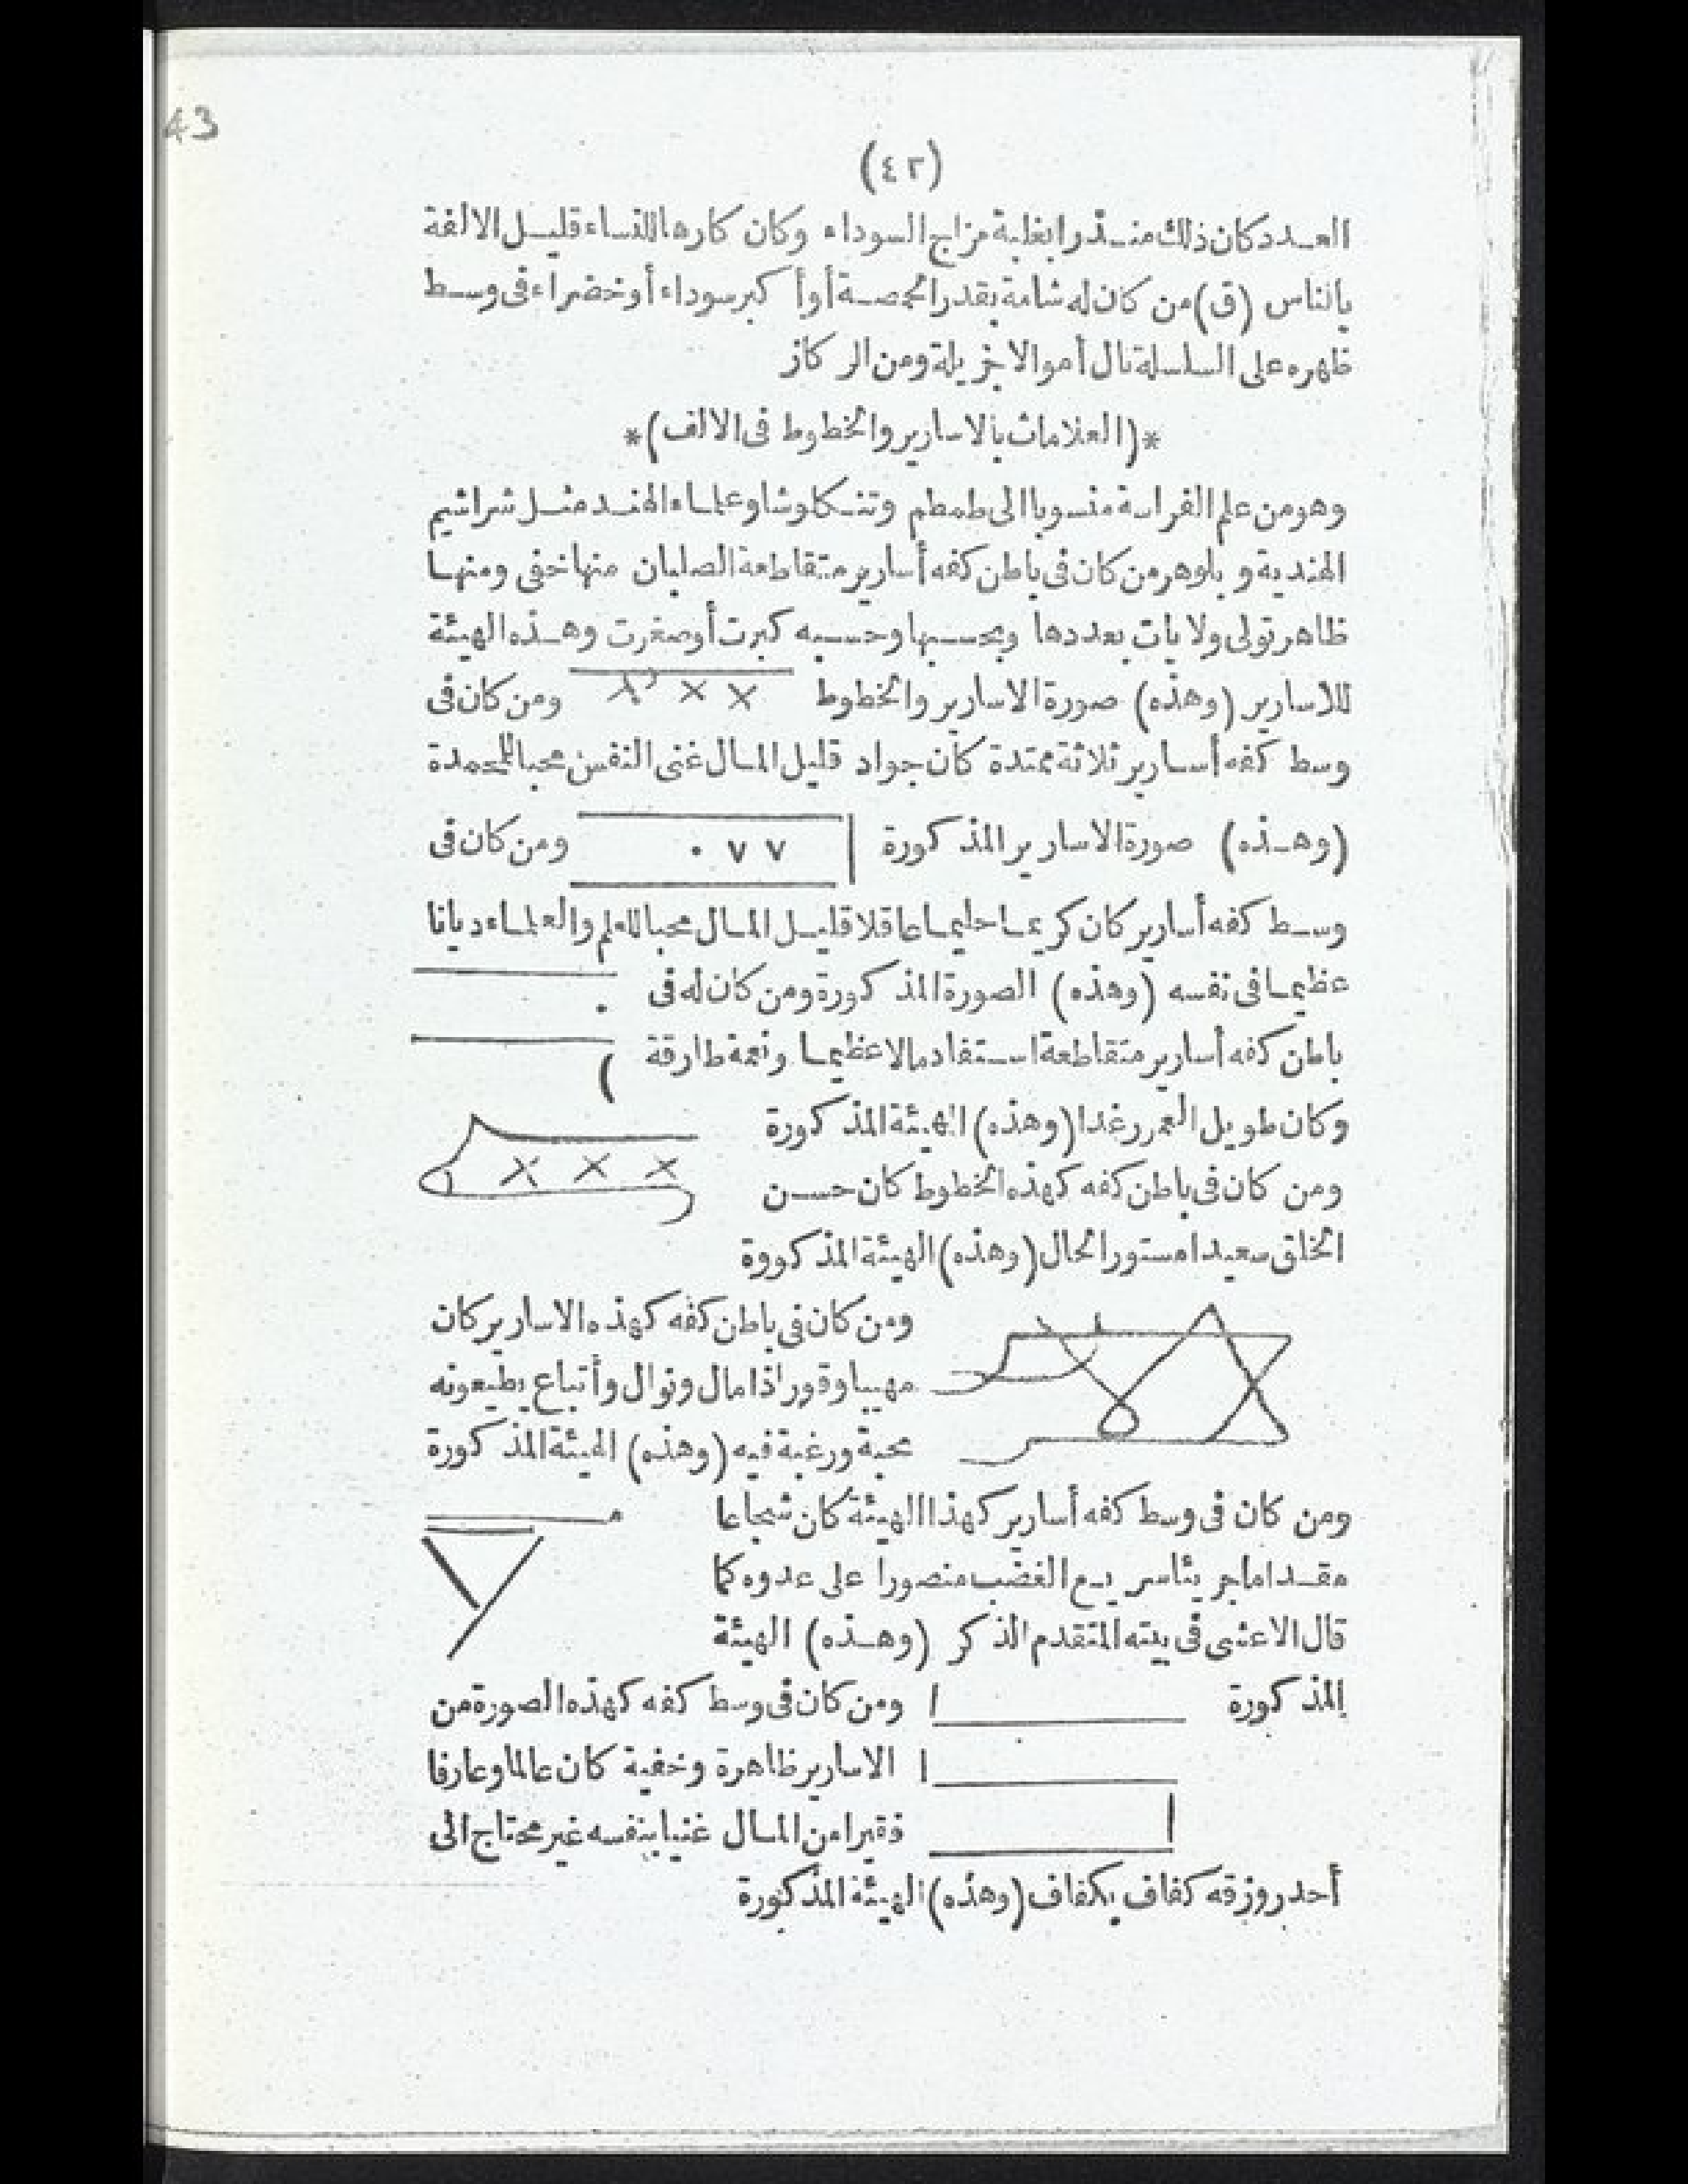 43
(٤٣)
العدد كان ذلك منذرا بغلبة مزاج السوداء وكان كارها للنساء قليل الالفة
بالناس (ق) من كان له شامة بقدر الحمصة أو أكبر سوداء أو خضراء فى وسط
ظهره على السلسلة نال أموالا جزيلة ومن الركاز
*(العلامات بالاسارير والخطوط فى الاكف)*
وهو من علم الفراسة منسوبا الى طمطم وتنكلوشا وعلماء الهند مثل شراشيم
الهندية و بلوهر من كان فى باطن كفه أسارير متقاطعة الصلبان منها خفى ومنها
ظاهر تولى ولايات بعددها وبحسبها وحسبه كبرت أو صغرت وهذه الهيئة
للاسارير (وهذه) صورة الاسارير والخطوط ومن كان فى
وسط كفه أسارير ثلاثة ممتدة كان جواد قليل المال غنى النفس محبا للمحمدة
(وهذه) صورة الاسارير المذكورة ٧ ٧ ٠ ومن كان فى
وسط كفه أسارير كان كريما حليما عاقلا قليل المال محبا للعلم والعلماء ديانا
عظيما فى نفسه (وهذه) الصورة المذكورة ومن كان له فى
باطن كفه أسارير متقاطعة استفاد مالا عظيما ونعمة طارقة
وكان طويل العمر رغدا (وهذه) الهيئة المذكورة
ومن كان فى باطن كفه كهذه الخطوط كان حسن
الخلق سعيدا مستور الحال (وهذه) الهيئة المذكووة
ومن كان فى باطن كفه كهذه الاسارير كان
مهيبا وقورا ذا مال ونوال وأتباع يطيعونه
محبة ورغبة فيه (وهذه) الهيئة المذكورة
ومن كان فى وسط كفه أسارير كهذا الهيئة كان شجاعا
مقداما جريئا سريع الغضب منصورا على عدوه كما
قال الاعشى فى بيته المتقدم الذكر (وهذه) الهيئة
المذكورة ومن كان فى وسط كفه كهذه الصورة من
الاسارير ظاهرة وخفية كان عالما وعارفا
فقيرا من المال غنيا بنفسه غير محتاج الى
أحد ورزقه كفاف بكفاف (وهذه) الهيئة المذكورة